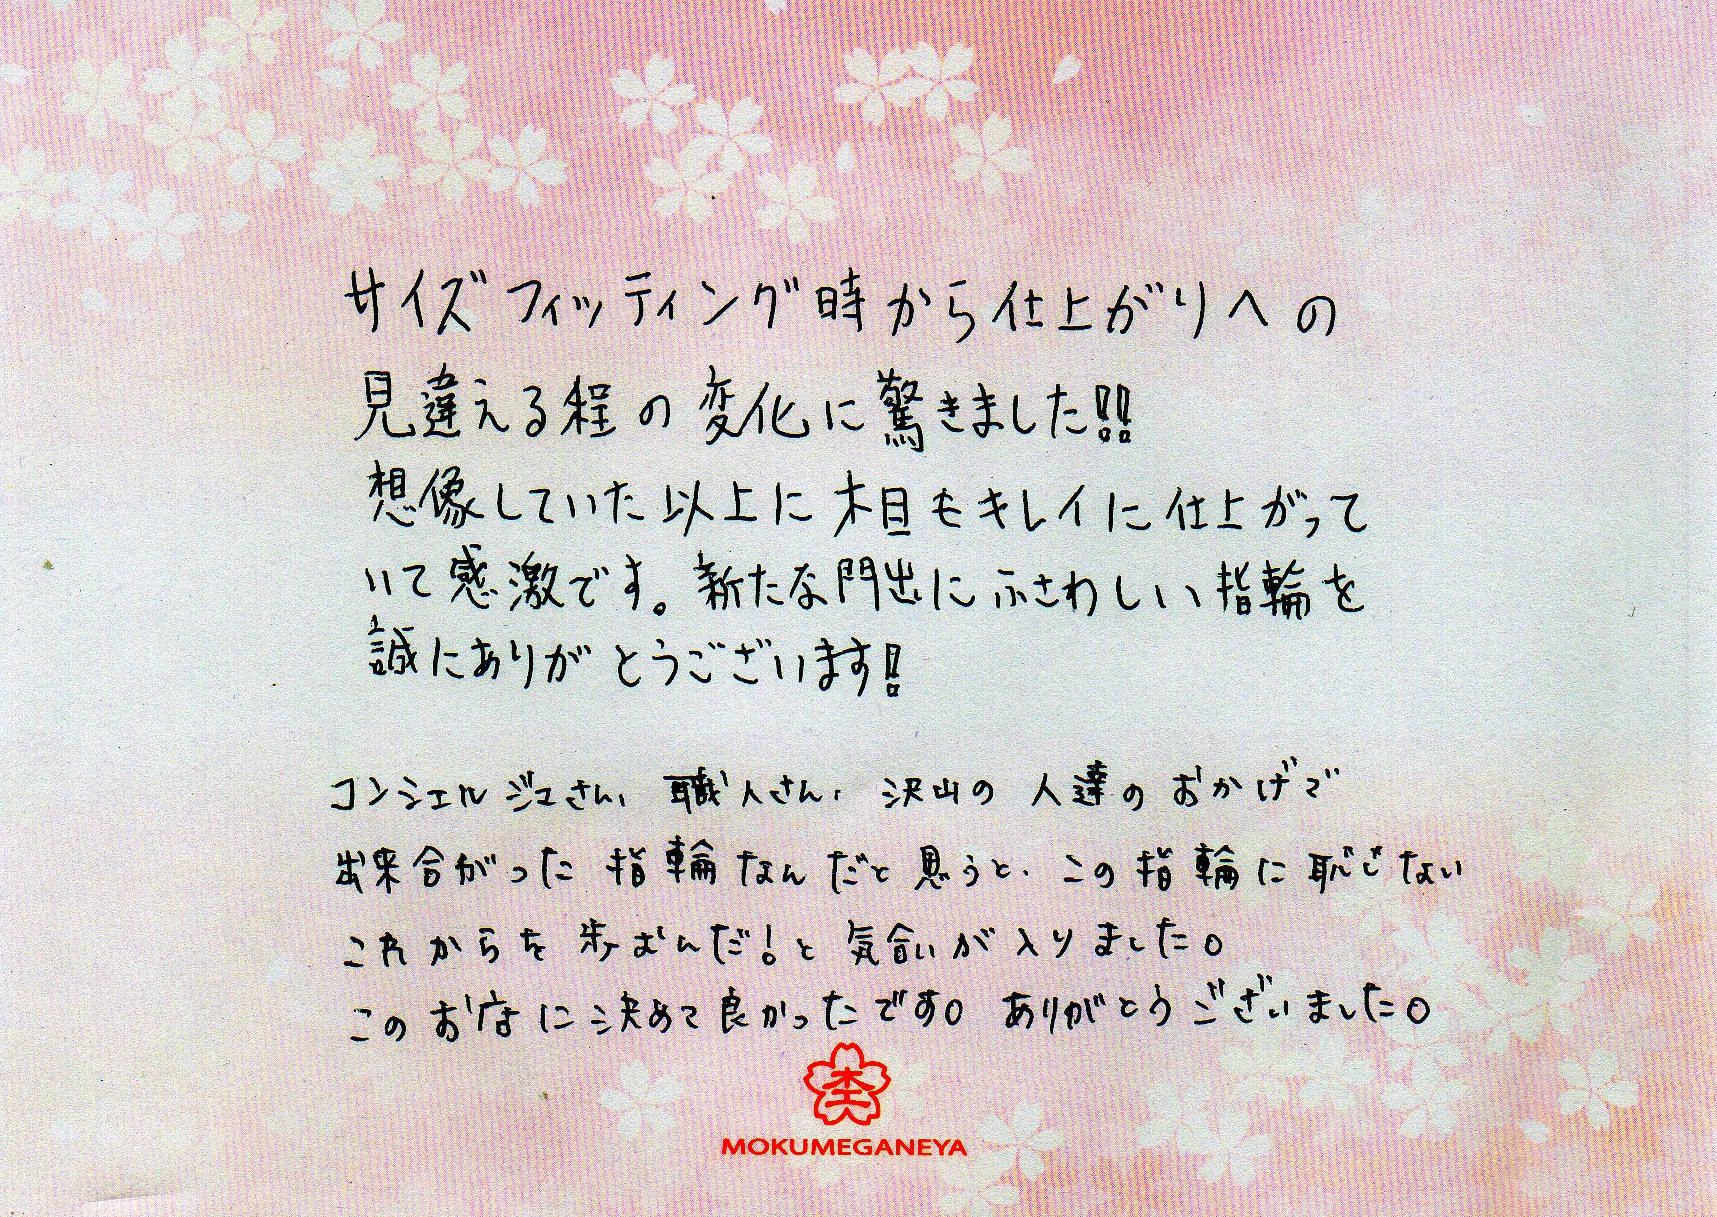 サイズフィッティング時から仕上がりへの
見違える程の変化に驚きました!!
想像していた以上に木目もキレイに仕上がって
いて感激です。新たな門出にふさわしい指輪を
誠にありがとうございます!
コンシェルジュさん、職人さん、沢山の人達のおかげで
出来合がった指輪なんだと思うと、この指輪に恥じない
これからを歩むんだ!と気合いが入りました。
このお店に決めて良かったです。ありがとうございました。
杢
MOKUMEGANEYA